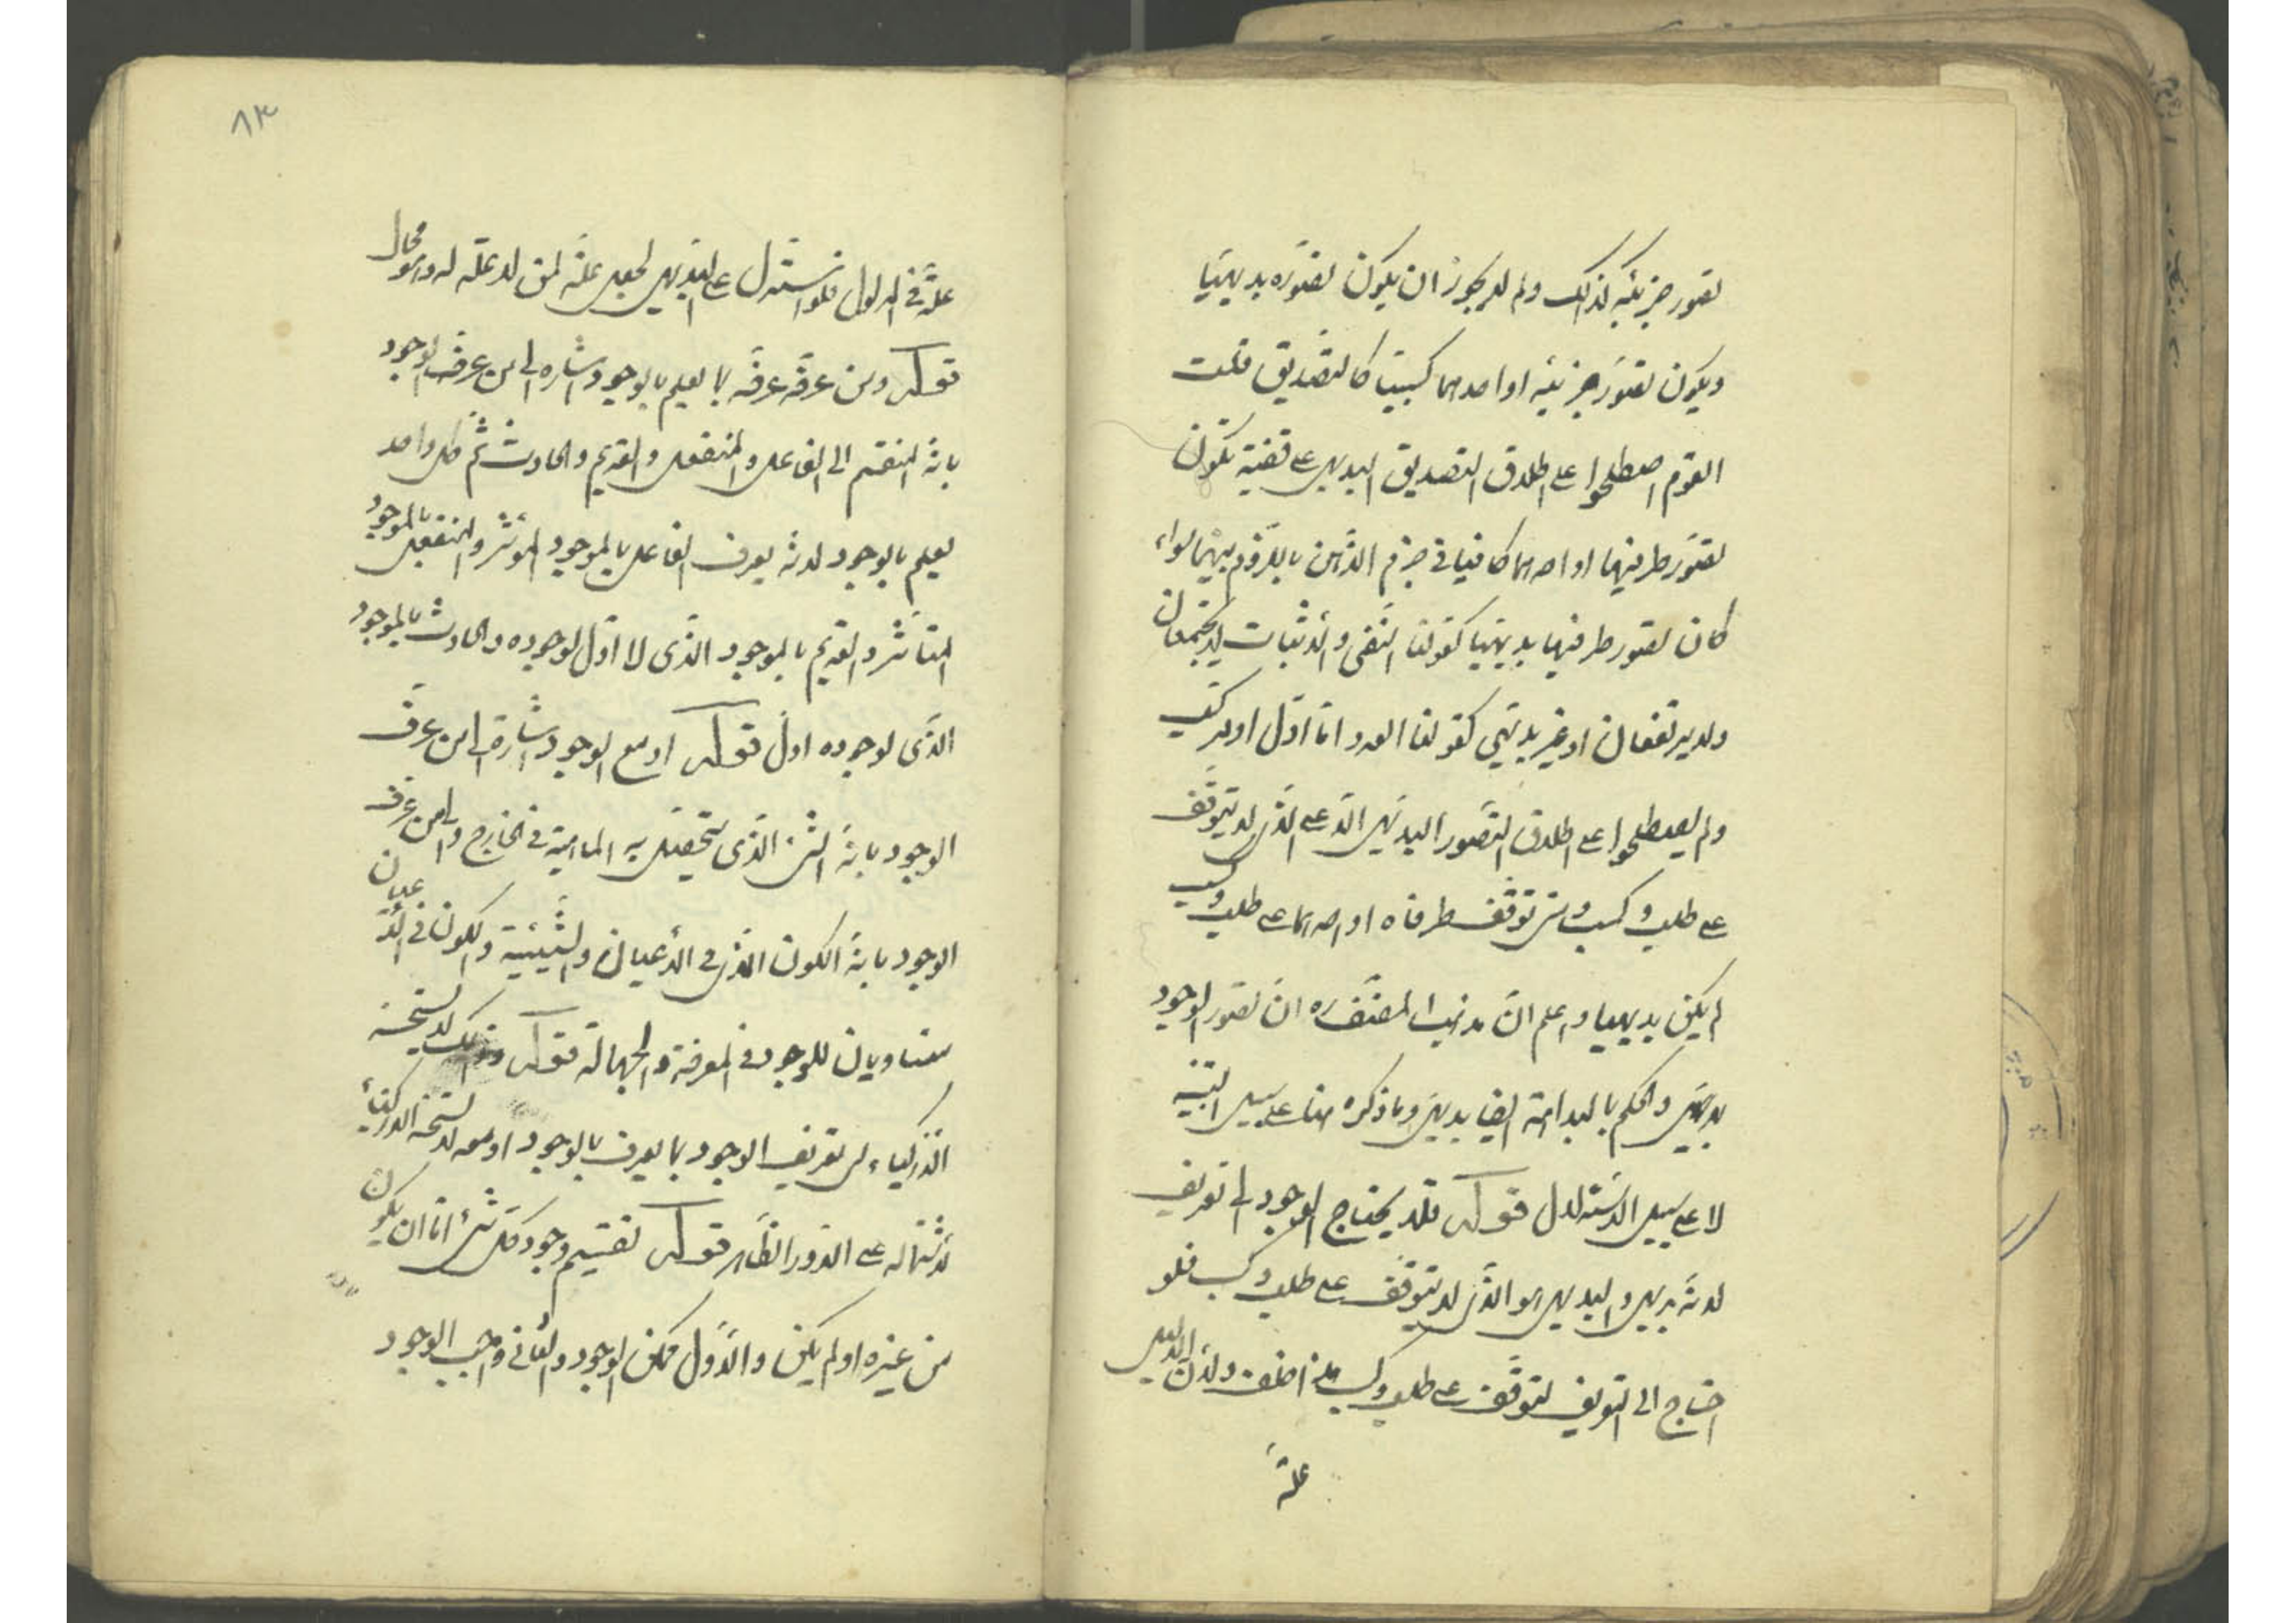 تصور جزئيه كذلك ولم لا يجوز ان يكون تصوره بديهيا
ويكون تصور جزئيه او احدهما كسبيا كالتصديق قلت
القوم اصطلحوا على اطلاق التصديق البديهى على قضية يكون
تصور طرفيها او احدهما كافيا فى جزم الذهن باللزوم بينهما سواء
كان تصور طرفيها بديهيا كقولنا النفى والاثبات لا يجتمعان
ولا يرتفعان او غير بديهى كقولنا العدد اما اول او مركب
ولم يصطلحوا على اطلاق التصور البديهى الا على الذى لا يتوقف
على طلب وكسب ومتى توقف طرفاه او احدهما على طلب وكسب
لم يكن بديهيا واعلم ان مذهب المصنف ره ان تصور الوجود
بديهى والحكم بالبداهة ايضا بديهى وما ذكره هنا على سبيل التنبيه
لا على سبيل الاستدلال قوله فلا يحتاج الوجود الى تعريف
لانه بديهى والبديهى هو الذى لا يتوقف على طلب وكسب فلو
احتاج الى التعريف لتوقف على طلب وكسب هذا خلف ولان الدليل
علة
٨٣
علة فى المدلول فلو استدل على البديهى لجعل علة لمن لا علة له وهو محال
قوله ومن عرفه عرفه بما يعلم بالوجود اشاره الى من عرف الوجود
بانه المنقسم الى الفاعل والمنفعل والقديم والحادث ثم كل واحد
يعلم بالوجود لانه يعرف الفاعل بالموجود المؤثر والمنفعل بالموجود
المتأثر والقديم بالموجود الذى لا اول لوجوده والحادث بالموجود
الذى لوجوده اول قوله او مع الوجود اشارة الى من عرف
الوجود بانه الشئ الذى يتحصل به الماهية فى الخارج والى من عرف
الوجود بانه الكون الذى فى الأعيان والشيئية والكون فى الأعيان
متساويان للوجود فى المعرفة والجهالة قوله وذلك لا يستحسنه
الأذكياء لان تعريف الوجود بما يعرف بالوجود او معه لا يستحسنه الأذكياء
لاشتماله على الدور الظاهر قوله تقسيم وجود كل شئ اما ان يكون
من غيره او لم يكن والأول ممكن الوجود والثانى واجب الوجود